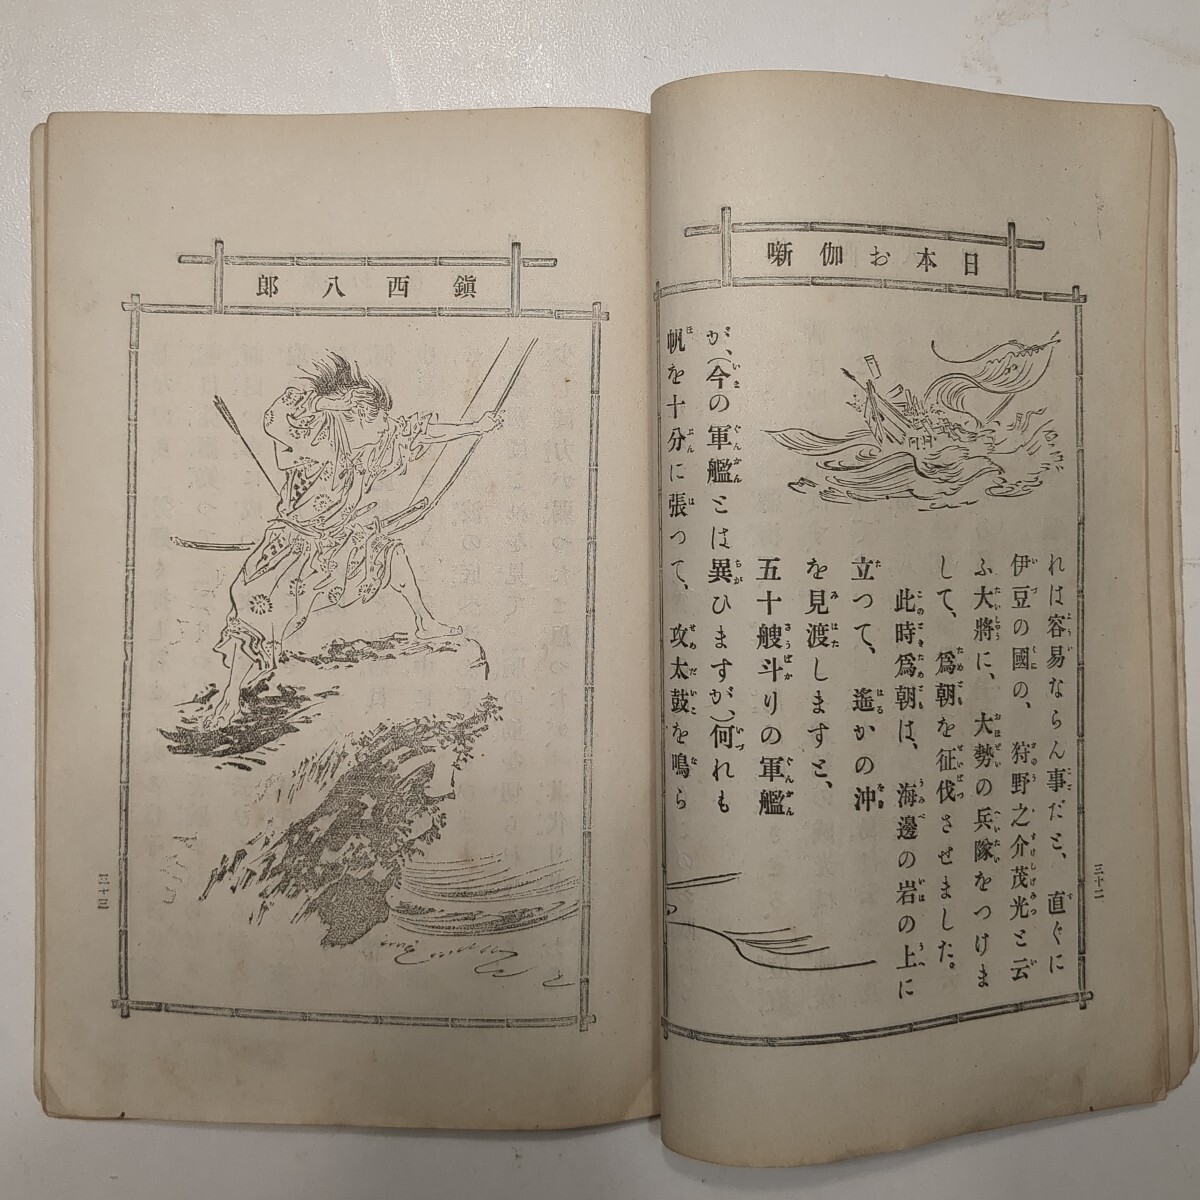 日本お伽噺
れは容易ならん事だと、直ぐに
伊豆の國の、狩野之介茂光と云
ふ大將に、大勢の兵隊をつけま
して、爲朝を征伐させました。
此時爲朝は、海邊の岩の上に
立つて、遙かの沖
を見渡しますと、
五十艘斗りの軍艦
が、(今の軍艦とは異ひますが、)何れも
帆を十分に張つて、攻太鼓を鳴ら
三十二
鎭西八郎
三十三